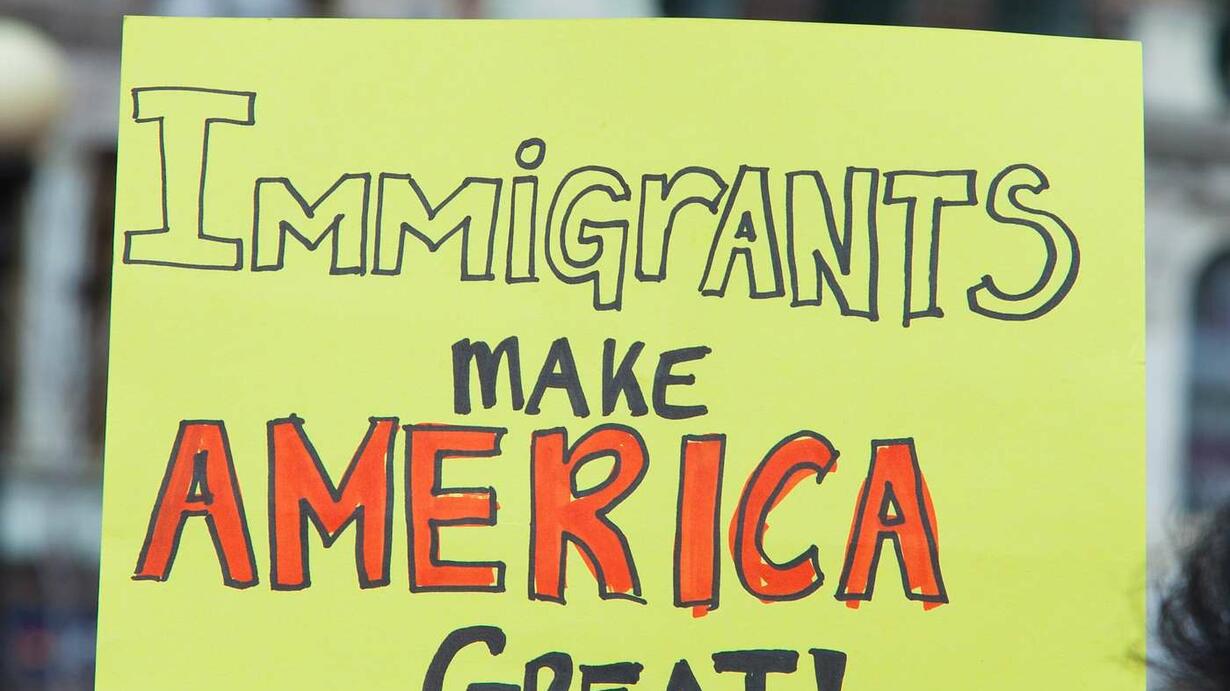 IMMiGrANTS
MAKE
AMERICA
GREAT!